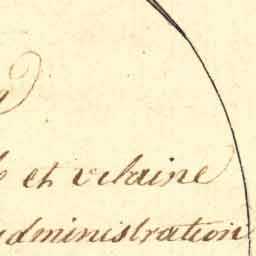 et vilaine
administration